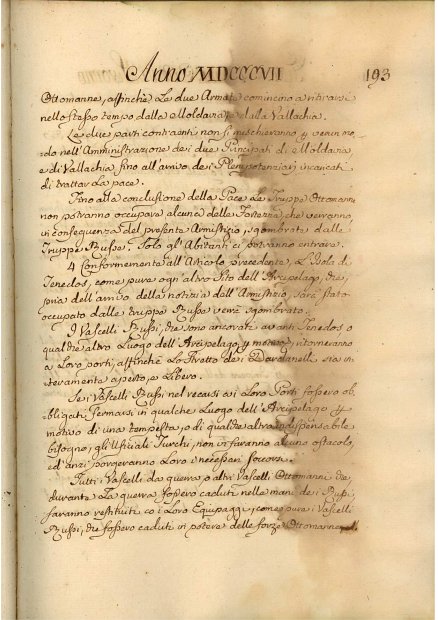 Anno MDCCCVII 193
Ottomanne, affinchè Le due Armate comincino a ritirarsi
nello stesso tempo dalla Moldavia e dalla Vallachia.
Le due parti contraenti non si mischieranno p verun mo-
do nell'Amministrazione dei due Principati di Moldavia,
e di Vallachia fino all'arrivo dei Plenipotenziarj incaricati
di trattar La pace.
Fino alla conclusione della Pace Le Truppe Ottomanne
non potranno occupare alcuna delle Fortezze, che verranno,
in conseguenza del presente Armistizio, sgombrate dalle
Truppe Russe. Solo gl'Abitanti ci potranno entrare.
4 Conformemente all'Articolo precedente, L'Isola di
Tenedos, come pure ogn'altro Sito dell'Arcipelago, che,
pria dell'arrivo della notizia dell'Armistizio, sarà stato
occupato dalle truppe Russe verrà sgombrato.
I Vascelli Russi, che sono ancorati avanti Tenedos o
qualche altro Luogo dell'Arcipelago, ritorneranno
a Loro porti, affinchè Lo Stretto dei Dardanelli sia in-
teramente aperto, e Libero.
Se i Vascelli Russi nel recarsi a i Loro Porti fossero ob-
bligati fermarsi in qualche Luogo dell'Arcipelago p
motivo di una tempesta, o di qualche altro indispensabile
bisogno, gli Ufficiali Turchi, non vi faranno alcuno ostacolo,
ed anzi porgeranno Loro i necessarj soccorsi.
Tutti i Vascelli da guerra, o altri Vascelli Ottomanni che
durante La guerra fossero caduti nelle mani dei Russi,
saranno restituiti co i Loro Equipaggi; come pure i Vascelli
Russi, che fossero caduti in potere delle forze Ottomanne